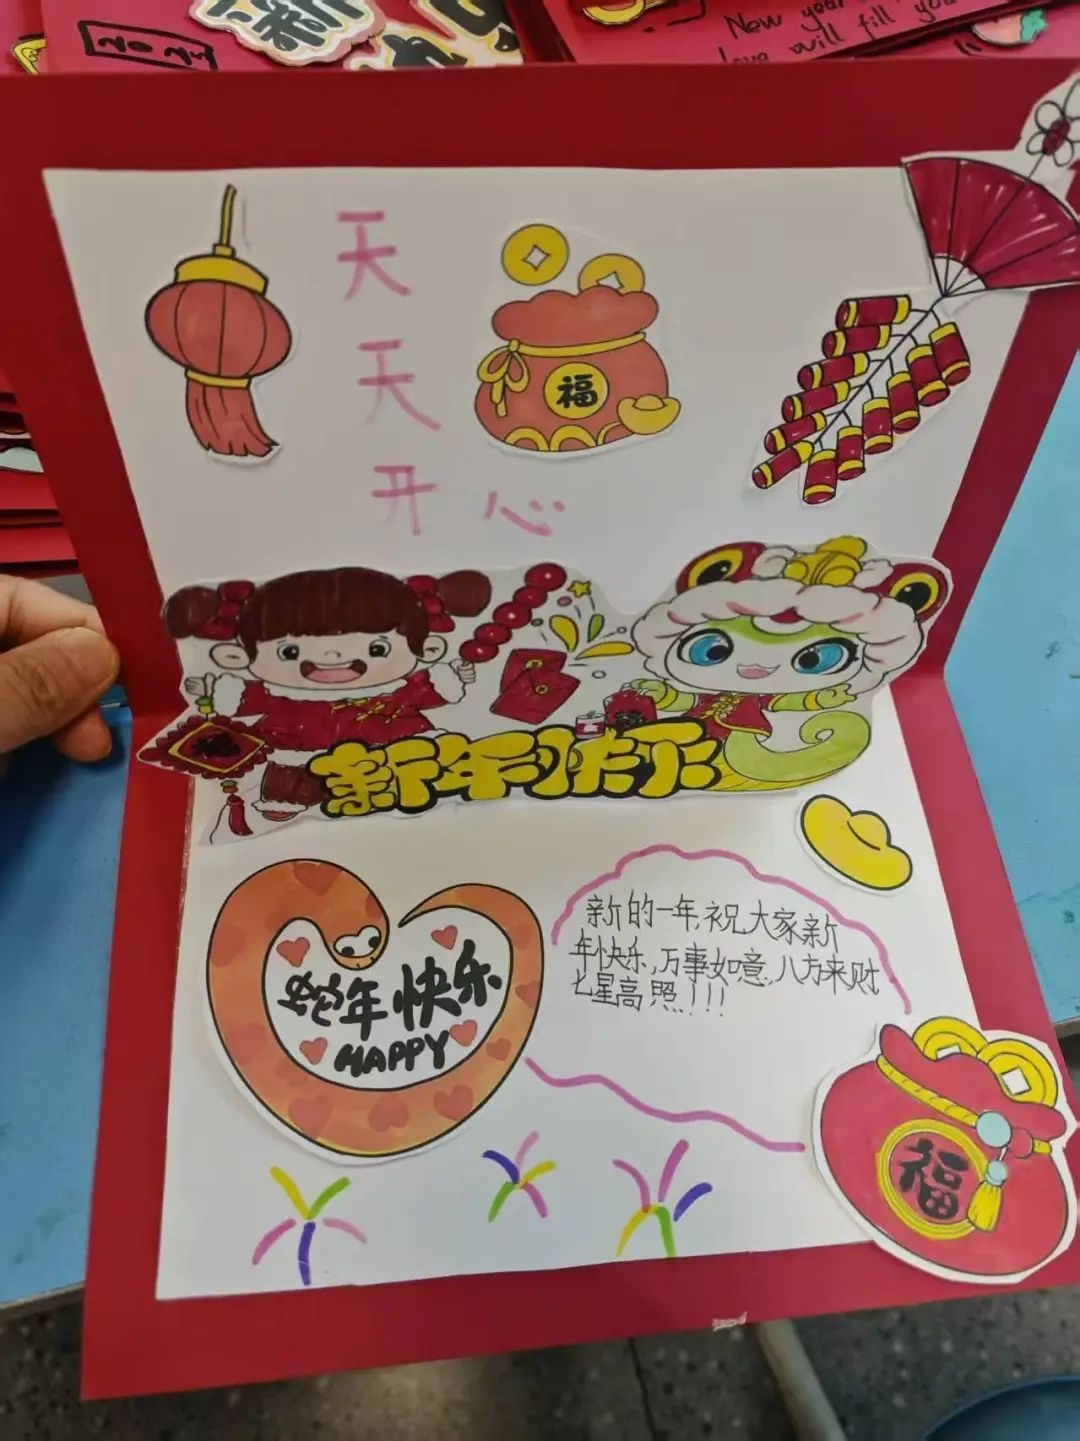 2025
新
New year
love will fill you
天
天
开心
福
新年快乐
蛇年快乐
HAPPY
新的一年,祝大家新
年快乐,万事如意,八方来财
七星高照!!!
福